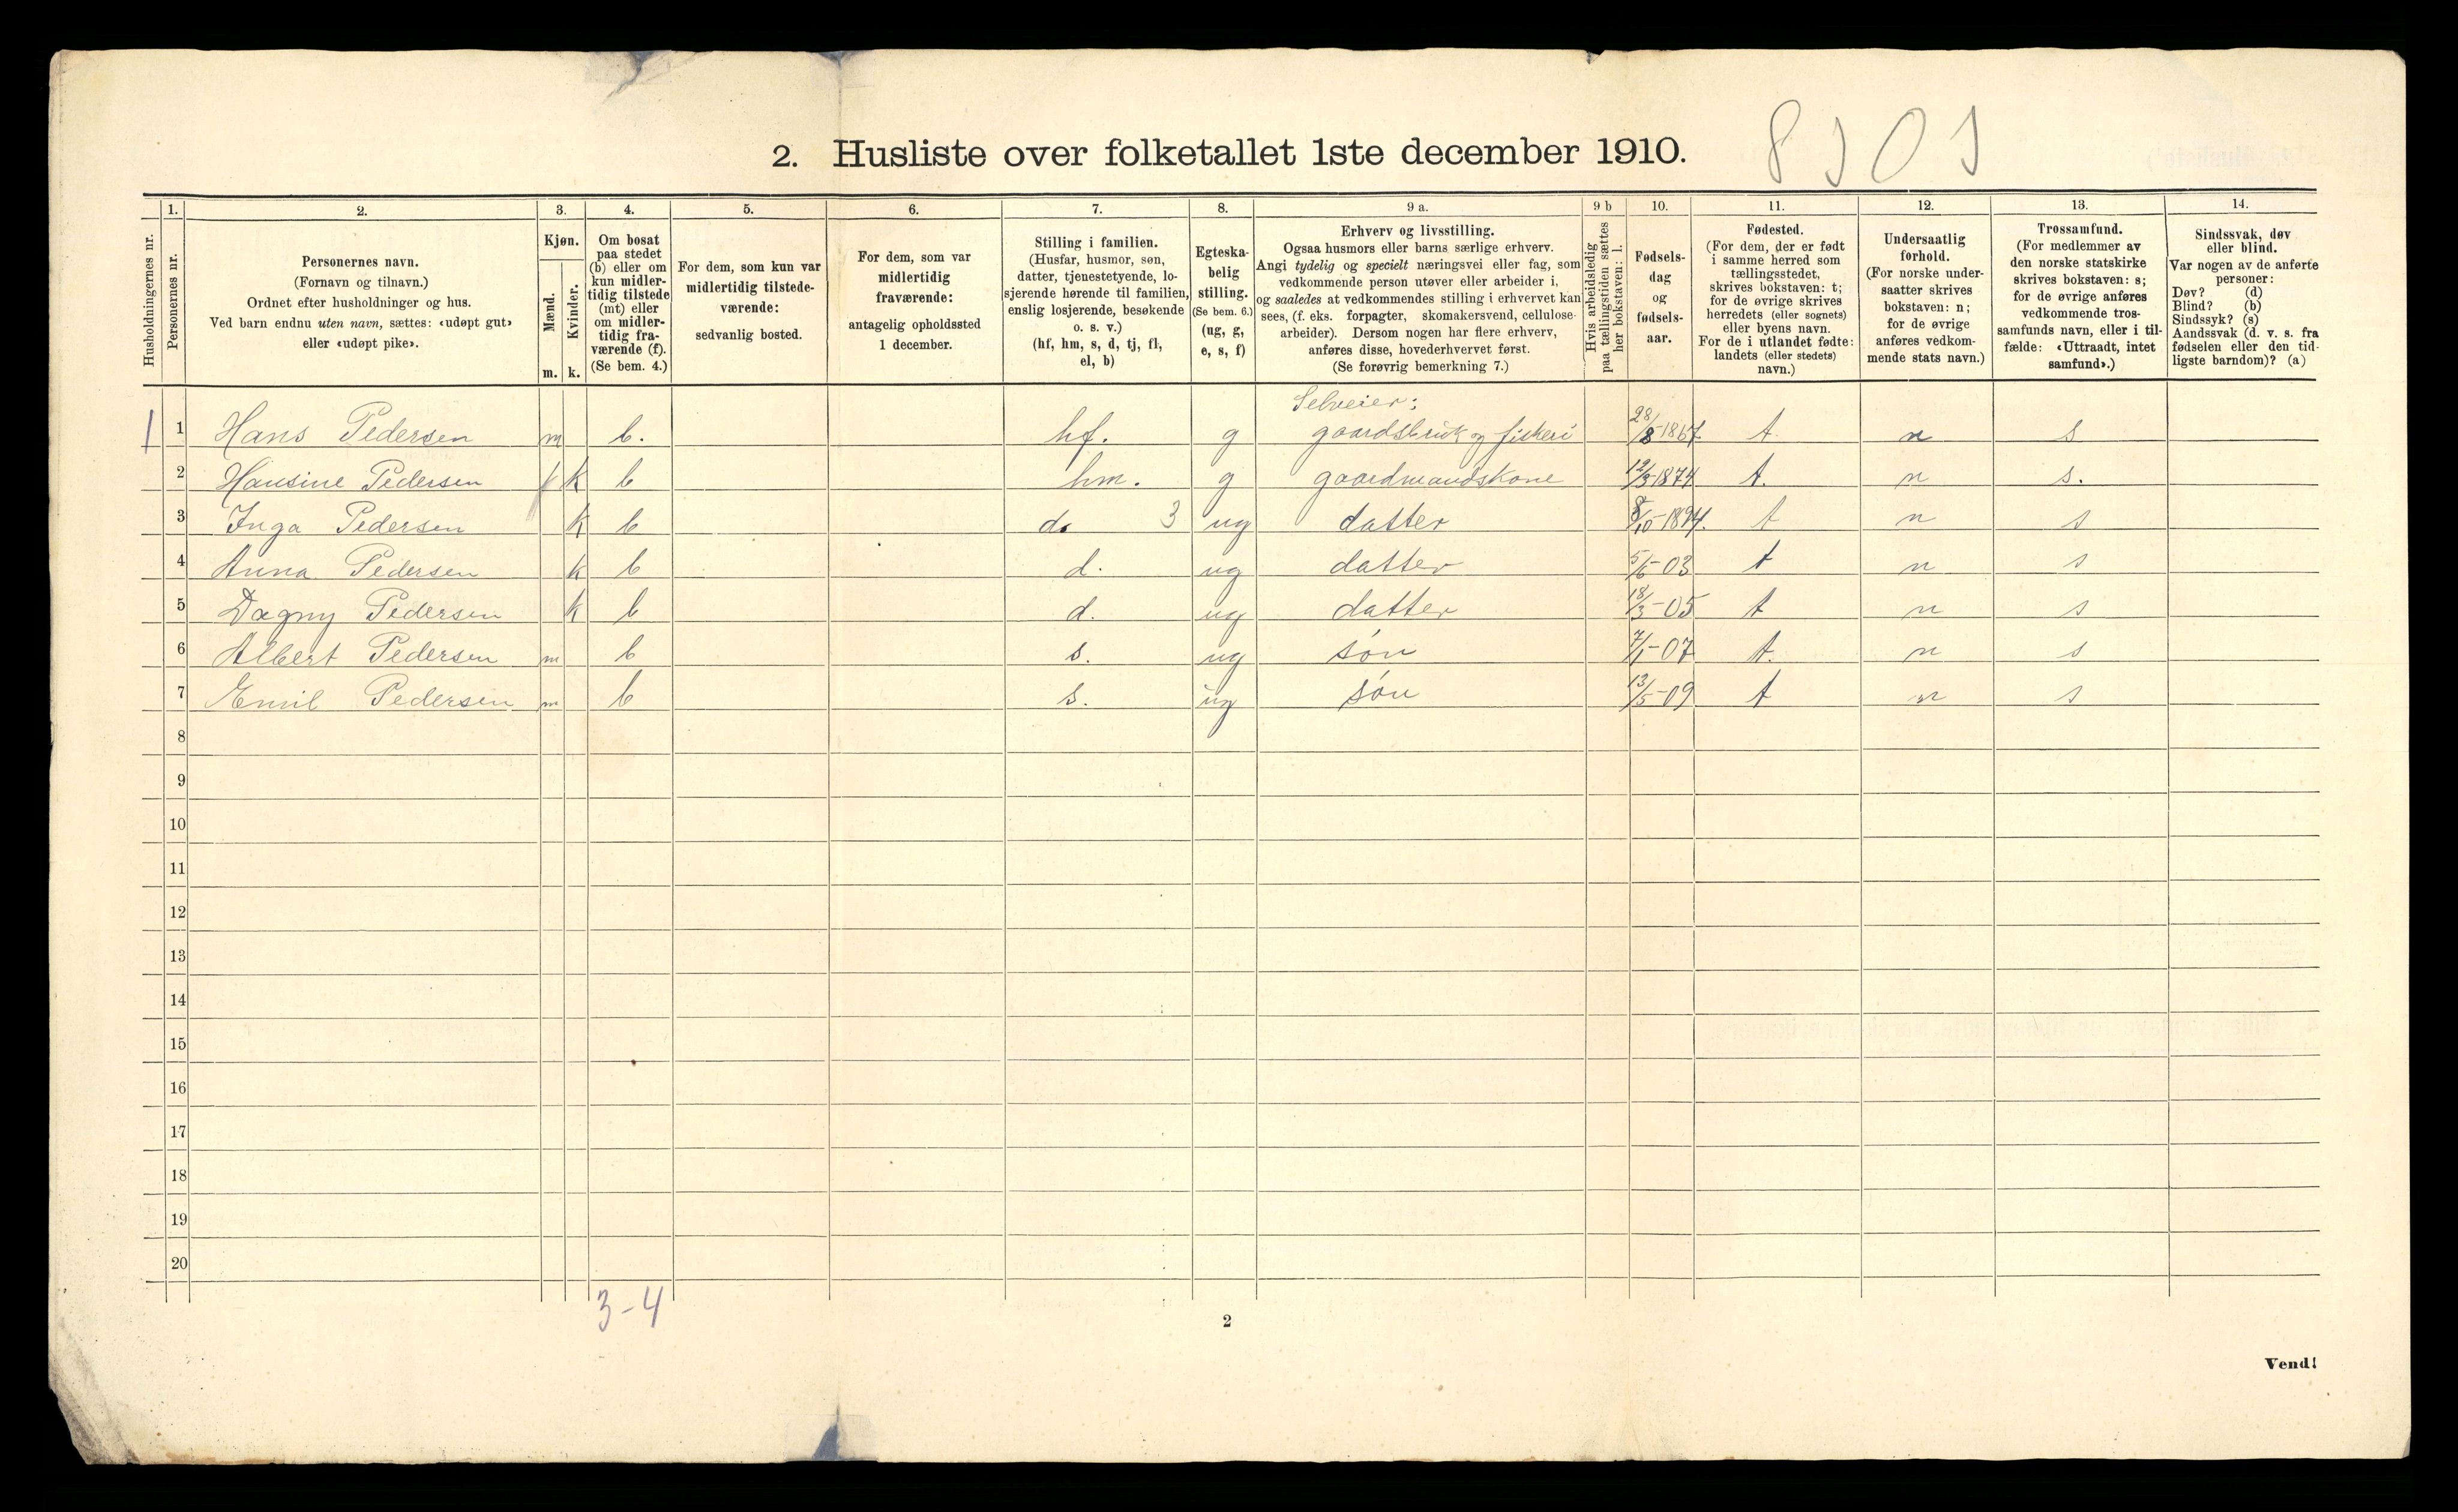 2. Husliste over folketallet 1ste december 1910.
Husholdningernes nr.
1.
Personernes nr.
2.
Personernes navn.
(Fornavn og tilnavn.)
Ordnet efter husholdninger og hus.
Ved barn endnu uten navn, sættes: «udøpt gut»
eller «udøpt pike».
3.
Kjøn.
Mænd.
Kvinder.
m. k.
4.
Om bosat
paa stedet
(b) eller om
kun midler-
tidig tilstede
(mt) eller
om midler-
tidig fra-
værende (f).
(Se bem. 4.)
5.
For dem, som kun var
midlertidig tilstede-
værende:
sedvanlig bosted.
6.
For dem, som var
midlertidig
fraværende:
antagelig opholdssted
1 december.
7.
Stilling i familien.
(Husfar, husmor, søn,
datter, tjenestetyende, lo-
sjerende hørende til familien,
enslig losjerende, besøkende
o. s. v.)
(hf, hm, s, d, tj, fl,
el, b)
8.
Egteska-
belig
stilling.
(Se bem. 6.)
(ug, g,
e, s, f)
9 a.
Erhverv og livsstilling.
Ogsaa husmors eller barns særlige erhverv.
Angi tydelig og specielt næringsvei eller fag, som
vedkommende person utøver eller arbeider i,
og saaledes at vedkommendes stilling i erhvervet kan
sees, (f. eks. forpagter, skomakersvend, cellulose-
arbeider). Dersom nogen har flere erhverv,
anføres disse, hovederhvervet først.
(Se forøvrig bemerkning 7.)
9 b
Hvis arbeidsledig
paa tællingstiden sættes
her bokstaven: l.
10.
Fødsels-
dag
og
fødsels-
aar.
11.
Fødested.
(For dem, der er født
i samme herred som
tællingsstedet,
skrives bokstaven: t;
for de øvrige skrives
herredets (eller sognets)
eller byens navn.
For de i utlandet fødte:
landets (eller stedets)
navn.)
12.
Undersaatlig
forhold.
(For norske under-
saatter skrives
bokstaven: n;
for de øvrige
anføres vedkom-
mende stats navn.)
13.
Trossamfund.
(For medlemmer av
den norske statskirke
skrives bokstaven: s;
for de øvrige anføres
vedkommende tros-
samfunds navn, eller i til-
fælde: «Uttraadt, intet
samfund».)
14.
Sindssvak, døv
eller blind.
Var nogen av de anførte
personer:
Døv? (d)
Blind? (b)
Sindssyk? (s)
Aandssvak (d. v. s. fra
fødselen eller den tid-
ligste barndom)? (a)
Selveier:
1 1 Hans Pedersen m b. hf. g gaardsbruk og fiskeri 28/8-1867. t n s
2 Hansine Pedersen k b hm. g gaardmandskone 12/3-1874 t. n s.
3 Inga Pedersen k b d. 3 ug datter 8/10-1894. t n s
4 Anna Pedersen k b d. ug datter 5/6-03 t n s
5 Dagny Pedersen k b d. ug datter 18/3-05 t n s
6 Albert Pedersen m b s. ug søn 7/1-07 t. n s
7 Emil Pedersen m b s. ug søn 13/5-09 t n s
8
9
10
11
12
13
14
15
16
17
18
19
20
3-4
2
Vend!